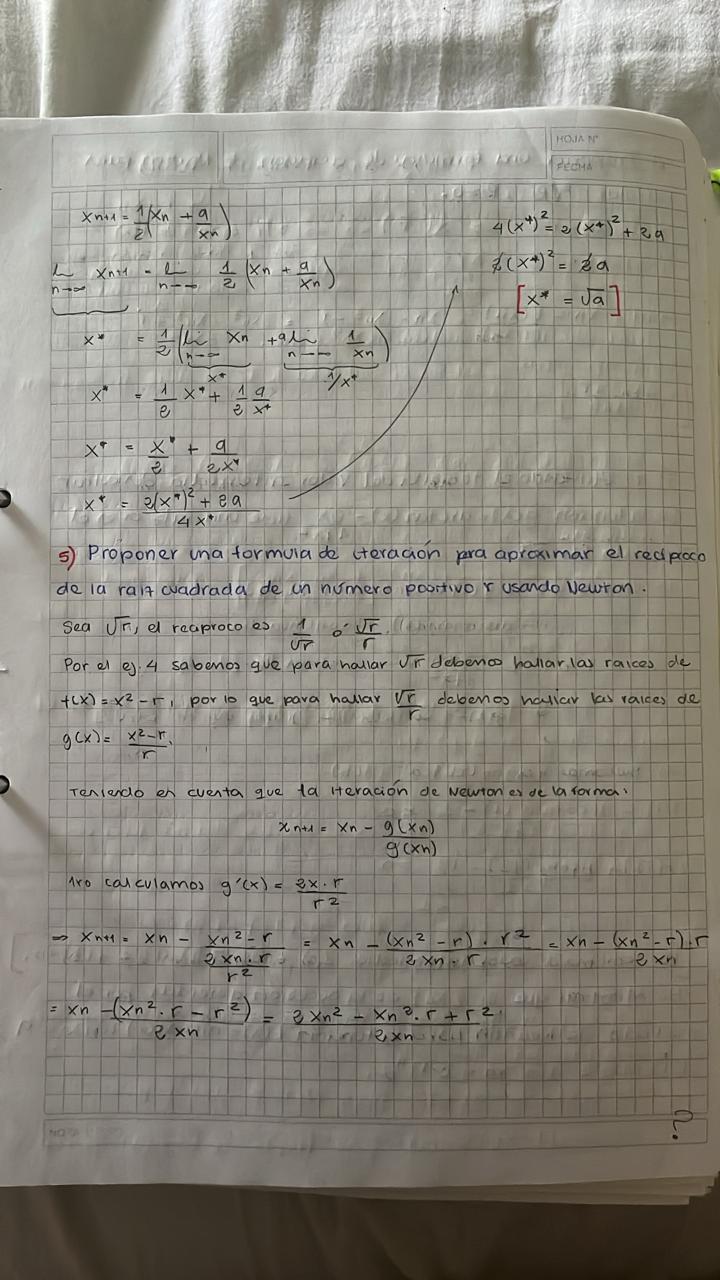 HOJA Nº
FECHA
Xn+1 = 1/2 (Xn + a/Xn)
lim n→∞ Xn+1 = lim n→∞ 1/2 (Xn + a/Xn)
X* = 1/2 (lim n→∞ Xn + a lim n→∞ 1/Xn)
X* 1/X*
X* = 1/2 X* + 1/2 a/X*
X* = X*/2 + a/2X*
X* = (2(X*)² + 2a)/4X*
4(X*)² = 2(X*)² + 2a
2(X*)² = 2a
[X* = √a]
5) Proponer una formula de iteración pra aproximar el recíproco
de la raiz cuadrada de un número positivo r usando Newton.
Sea √r, el reciproco es 1/√r ó √r/r
Por el ej. 4 sabemos que para hallar √r debemos hallar las raices de
f(x) = x² - r, por lo que para hallar √r/r debemos hallar las raices de
g(x) = (x² - r)/r.
Teniendo en cuenta que la iteración de Newton es de la forma:
Xn+1 = Xn - g(Xn)/g'(Xn)
1ro calculamos g'(x) = 2x · r/r²
⇒ Xn+1 = Xn - (Xn² - r)/(2Xn · r/r²) = Xn - (Xn² - r) · r²/2Xn · r = Xn - (Xn² - r) · r/2Xn
= Xn - (Xn² · r - r²)/2Xn = (2Xn² - Xn² · r + r²)/2Xn
?